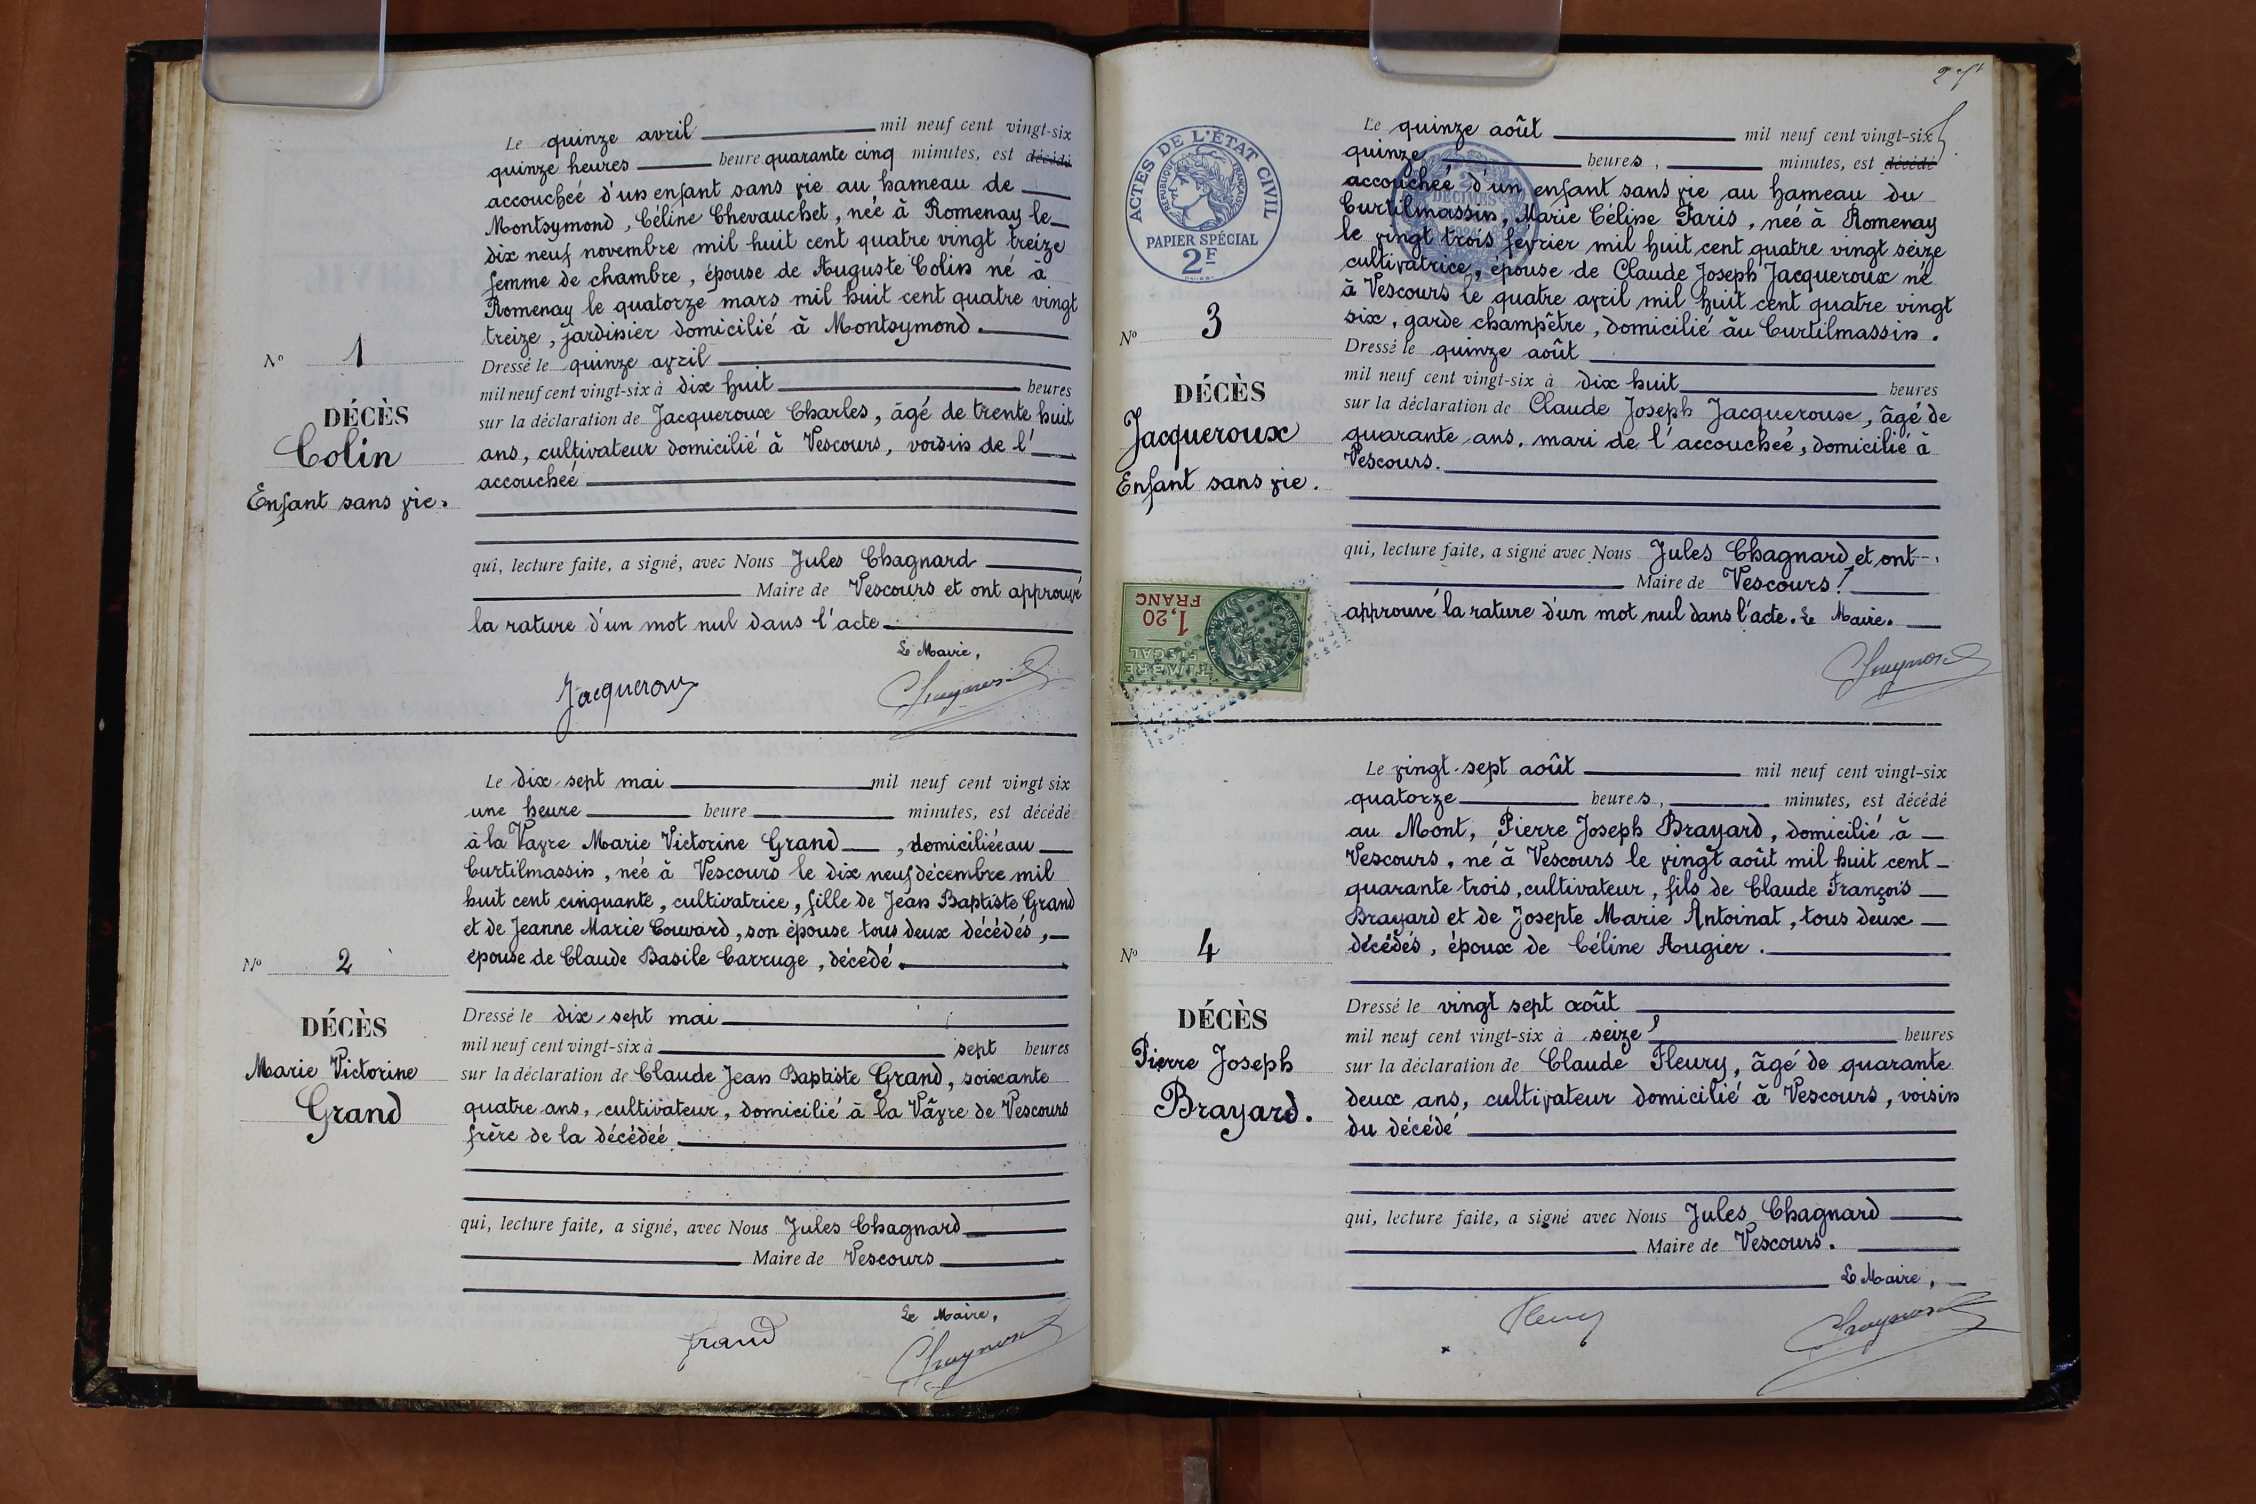 Le quinze avril mil neuf cent vingt-six
quinze heures heure quarante cinq minutes, est décédé
accouchéé d'un enfant sans vie au hameau de
Montsymond, Céline Chevauchet, néé à Romenay le
dix neuf novembre mil huit cent quatre vingt treize
femme de chambre, épouse de Auguste Colin né à
Romenay le quatorze mars mil huit cent quatre vingt
treize, jardinier domicilié à Montsymond.
N° 1
DÉCÈS
Colin
Enfant sans vie.
Dressé le quinze avril
mil neuf cent vingt-six à dix huit heures
sur la déclaration de Jacqueroux Charles, âgé de trente huit
ans, cultivateur domicilié à Vescours, voisin de l'
accouchéé
qui, lecture faite, a signé, avec Nous Jules Chagnard
Maire de Vescours et ont approuvé
la rature d'un mot nul dans l'acte
Le Maire,
Jacqueroux
Chagnard
Le dix sept mai mil neuf cent vingt six
une heure heure minutes, est décédé
à la Vavre Marie Victorine Grand, domiciliée au
Curtilmassin, néé à Vescours le dix neuf décembre mil
huit cent cinquante, cultivatrice, fille de Jean Baptiste Grand
et de Jeanne Marie Couvard, son épouse tous deux décédés,
épouse de Claude Basile Carruge, décédé.
N° 2
DÉCÈS
Marie Victorine
Grand
Dressé le dix sept mai
mil neuf cent vingt-six à sept heures
sur la déclaration de Claude Jean Baptiste Grand, soixante
quatre ans, cultivateur, domicilié à la Vavre de Vescours
frère de la décédéé
qui, lecture faite, a signé, avec Nous Jules Chagnard
Maire de Vescours
Le Maire,
Grand
Chagnard
ACTES DE L'ÉTAT CIVIL
RÉPUBLIQUE FRANÇAISE
PAPIER SPÉCIAL
2F
Le quinze août mil neuf cent vingt-six
quinze heures, minutes, est décédé
accouchéé d'un enfant sans vie au hameau du
Curtilmassin, Marie Céline Paris, néé à Romenay
le vingt trois février mil huit cent quatre vingt seize
cultivatrice, épouse de Claude Joseph Jacqueroux né
à Vescours le quatre avril mil huit cent quatre vingt
six, garde champêtre, domicilié au Curtilmassin.
N° 3
DÉCÈS
Jacqueroux
Enfant sans vie.
Dressé le quinze août
mil neuf cent vingt-six à dix huit heures
sur la déclaration de Claude Joseph Jacqueroux, âgé de
quarante ans, mari de l'accouchéé, domicilié à
Vescours.
qui, lecture faite, a signé avec Nous Jules Chagnard et ont
Maire de Vescours
approuvé la rature d'un mot nul dans l'acte. Le Maire.
Chagnard
1,20
FRANC
TIMBRE
FISCAL
Le vingt-sept août mil neuf cent vingt-six
quatorze heures, minutes, est décédé
au Mont, Pierre Joseph Brayard, domicilié à
Vescours, né à Vescours le vingt août mil huit cent
quarante trois, cultivateur, fils de Claude François
Brayard et de Josepte Marie Antoinat, tous deux
décédés, époux de Céline Augier.
N° 4
DÉCÈS
Pierre Joseph
Brayard.
Dressé le vingt sept août
mil neuf cent vingt-six à seize heures
sur la déclaration de Claude Fleury, âgé de quarante
deux ans, cultivateur domicilié à Vescours, voisin
du décédé
qui, lecture faite, a signé avec Nous Jules Chagnard
Maire de Vescours.
Le Maire,
Fleury
Chagnard